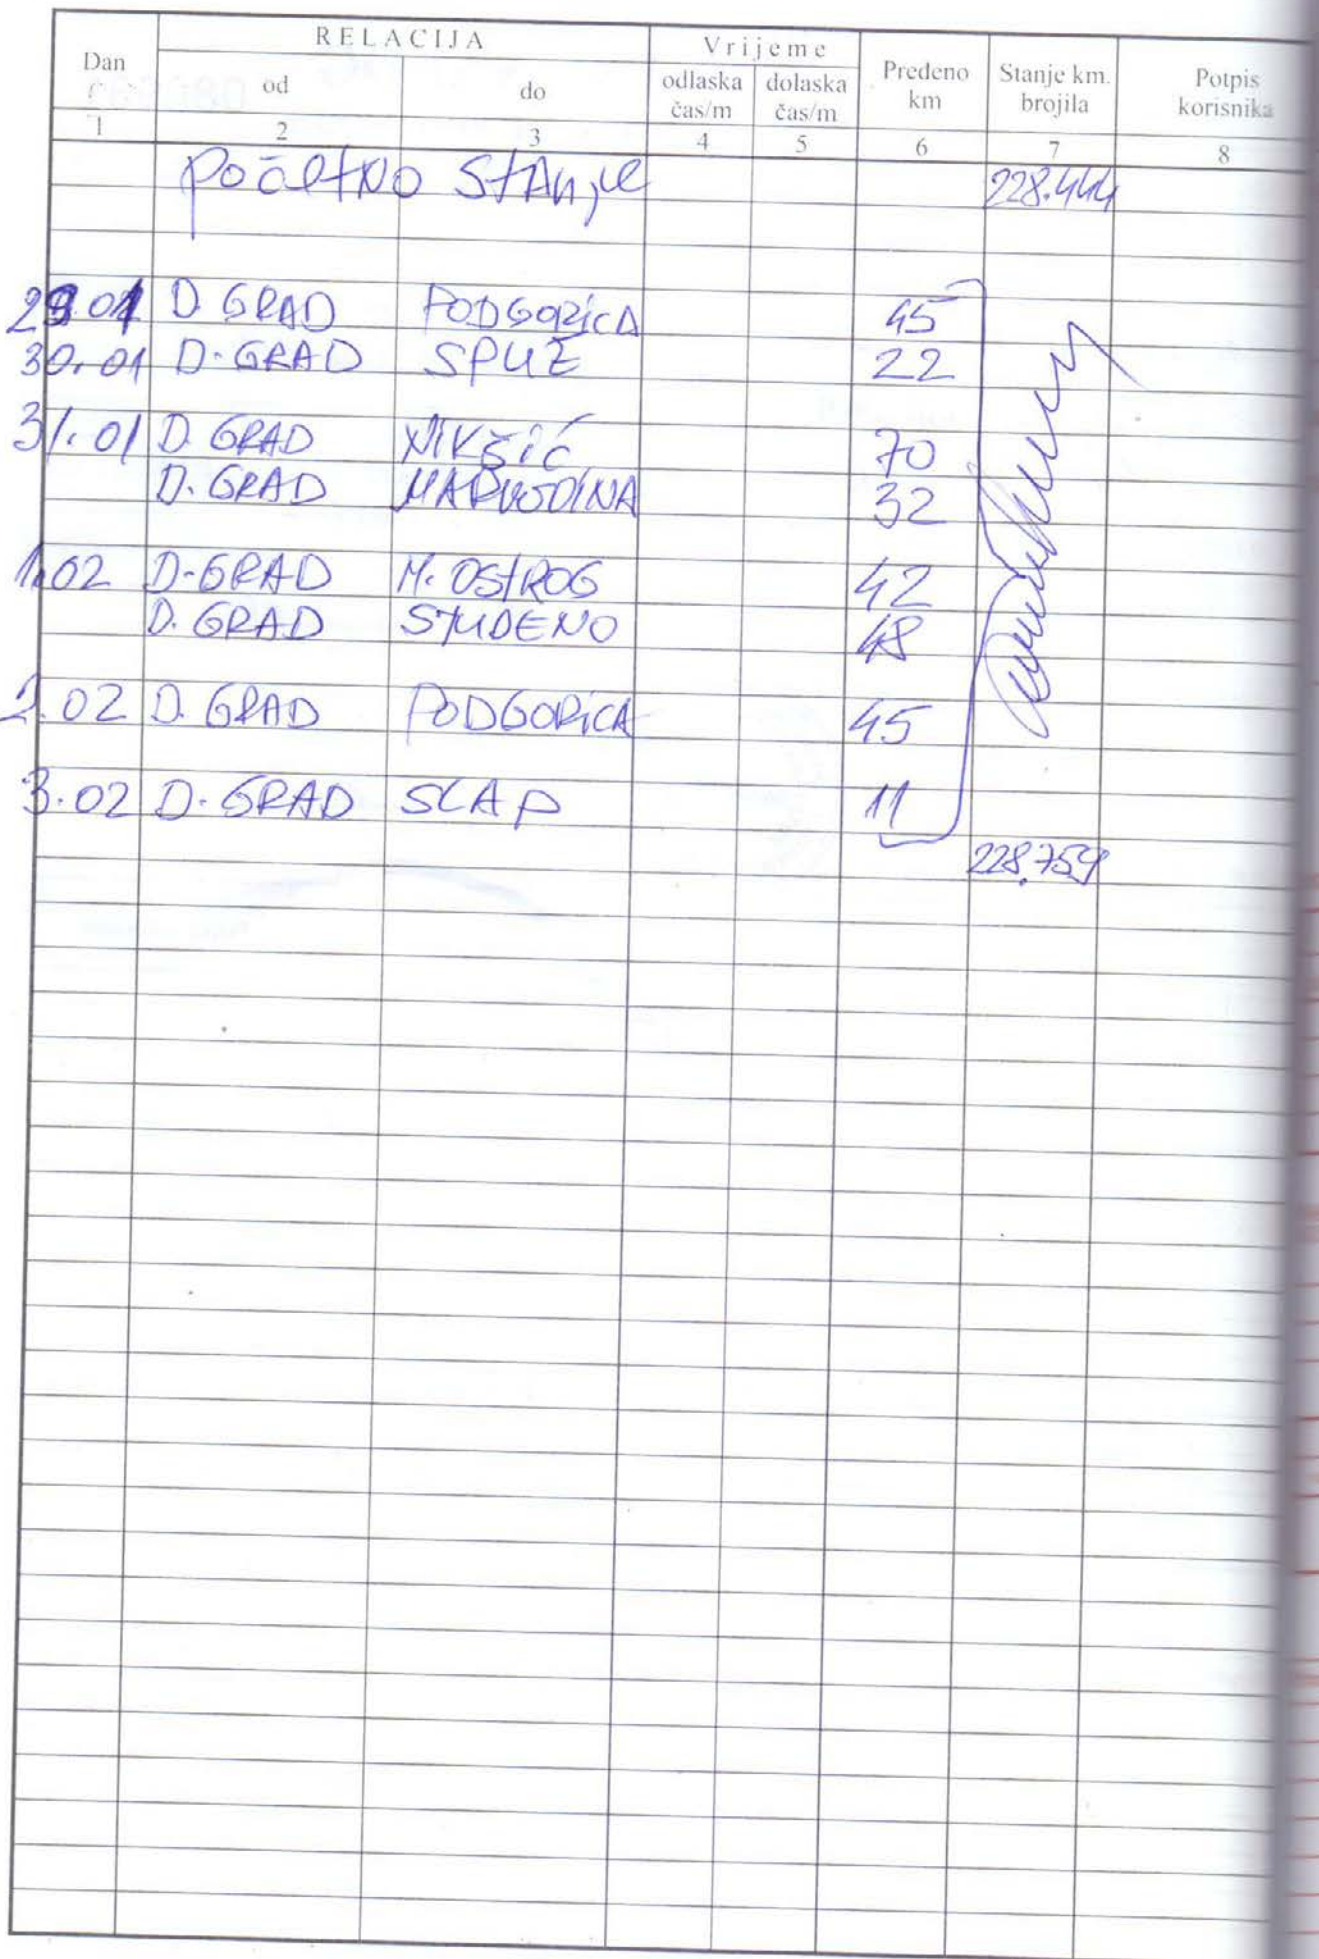 RELACIJA Vrijeme
Dan od do odlaska čas/m dolaska čas/m Pređeno km Stanje km. brojila Potpis korisnika
1 2 3 4 5 6 7 8
Početno Stanje 228.444
29.01 D GRAD PODGORICA 45
30.01 D. GRAD SPUŽ 22
31.01 D. GRAD NIKŠIĆ 70
D. GRAD 32
1.02 D. GRAD M. OSTROG 42
D. GRAD STUDENO 48
2.02 D. GRAD PODGORICA 45
3.02 D. GRAD SLAP 11
228.759